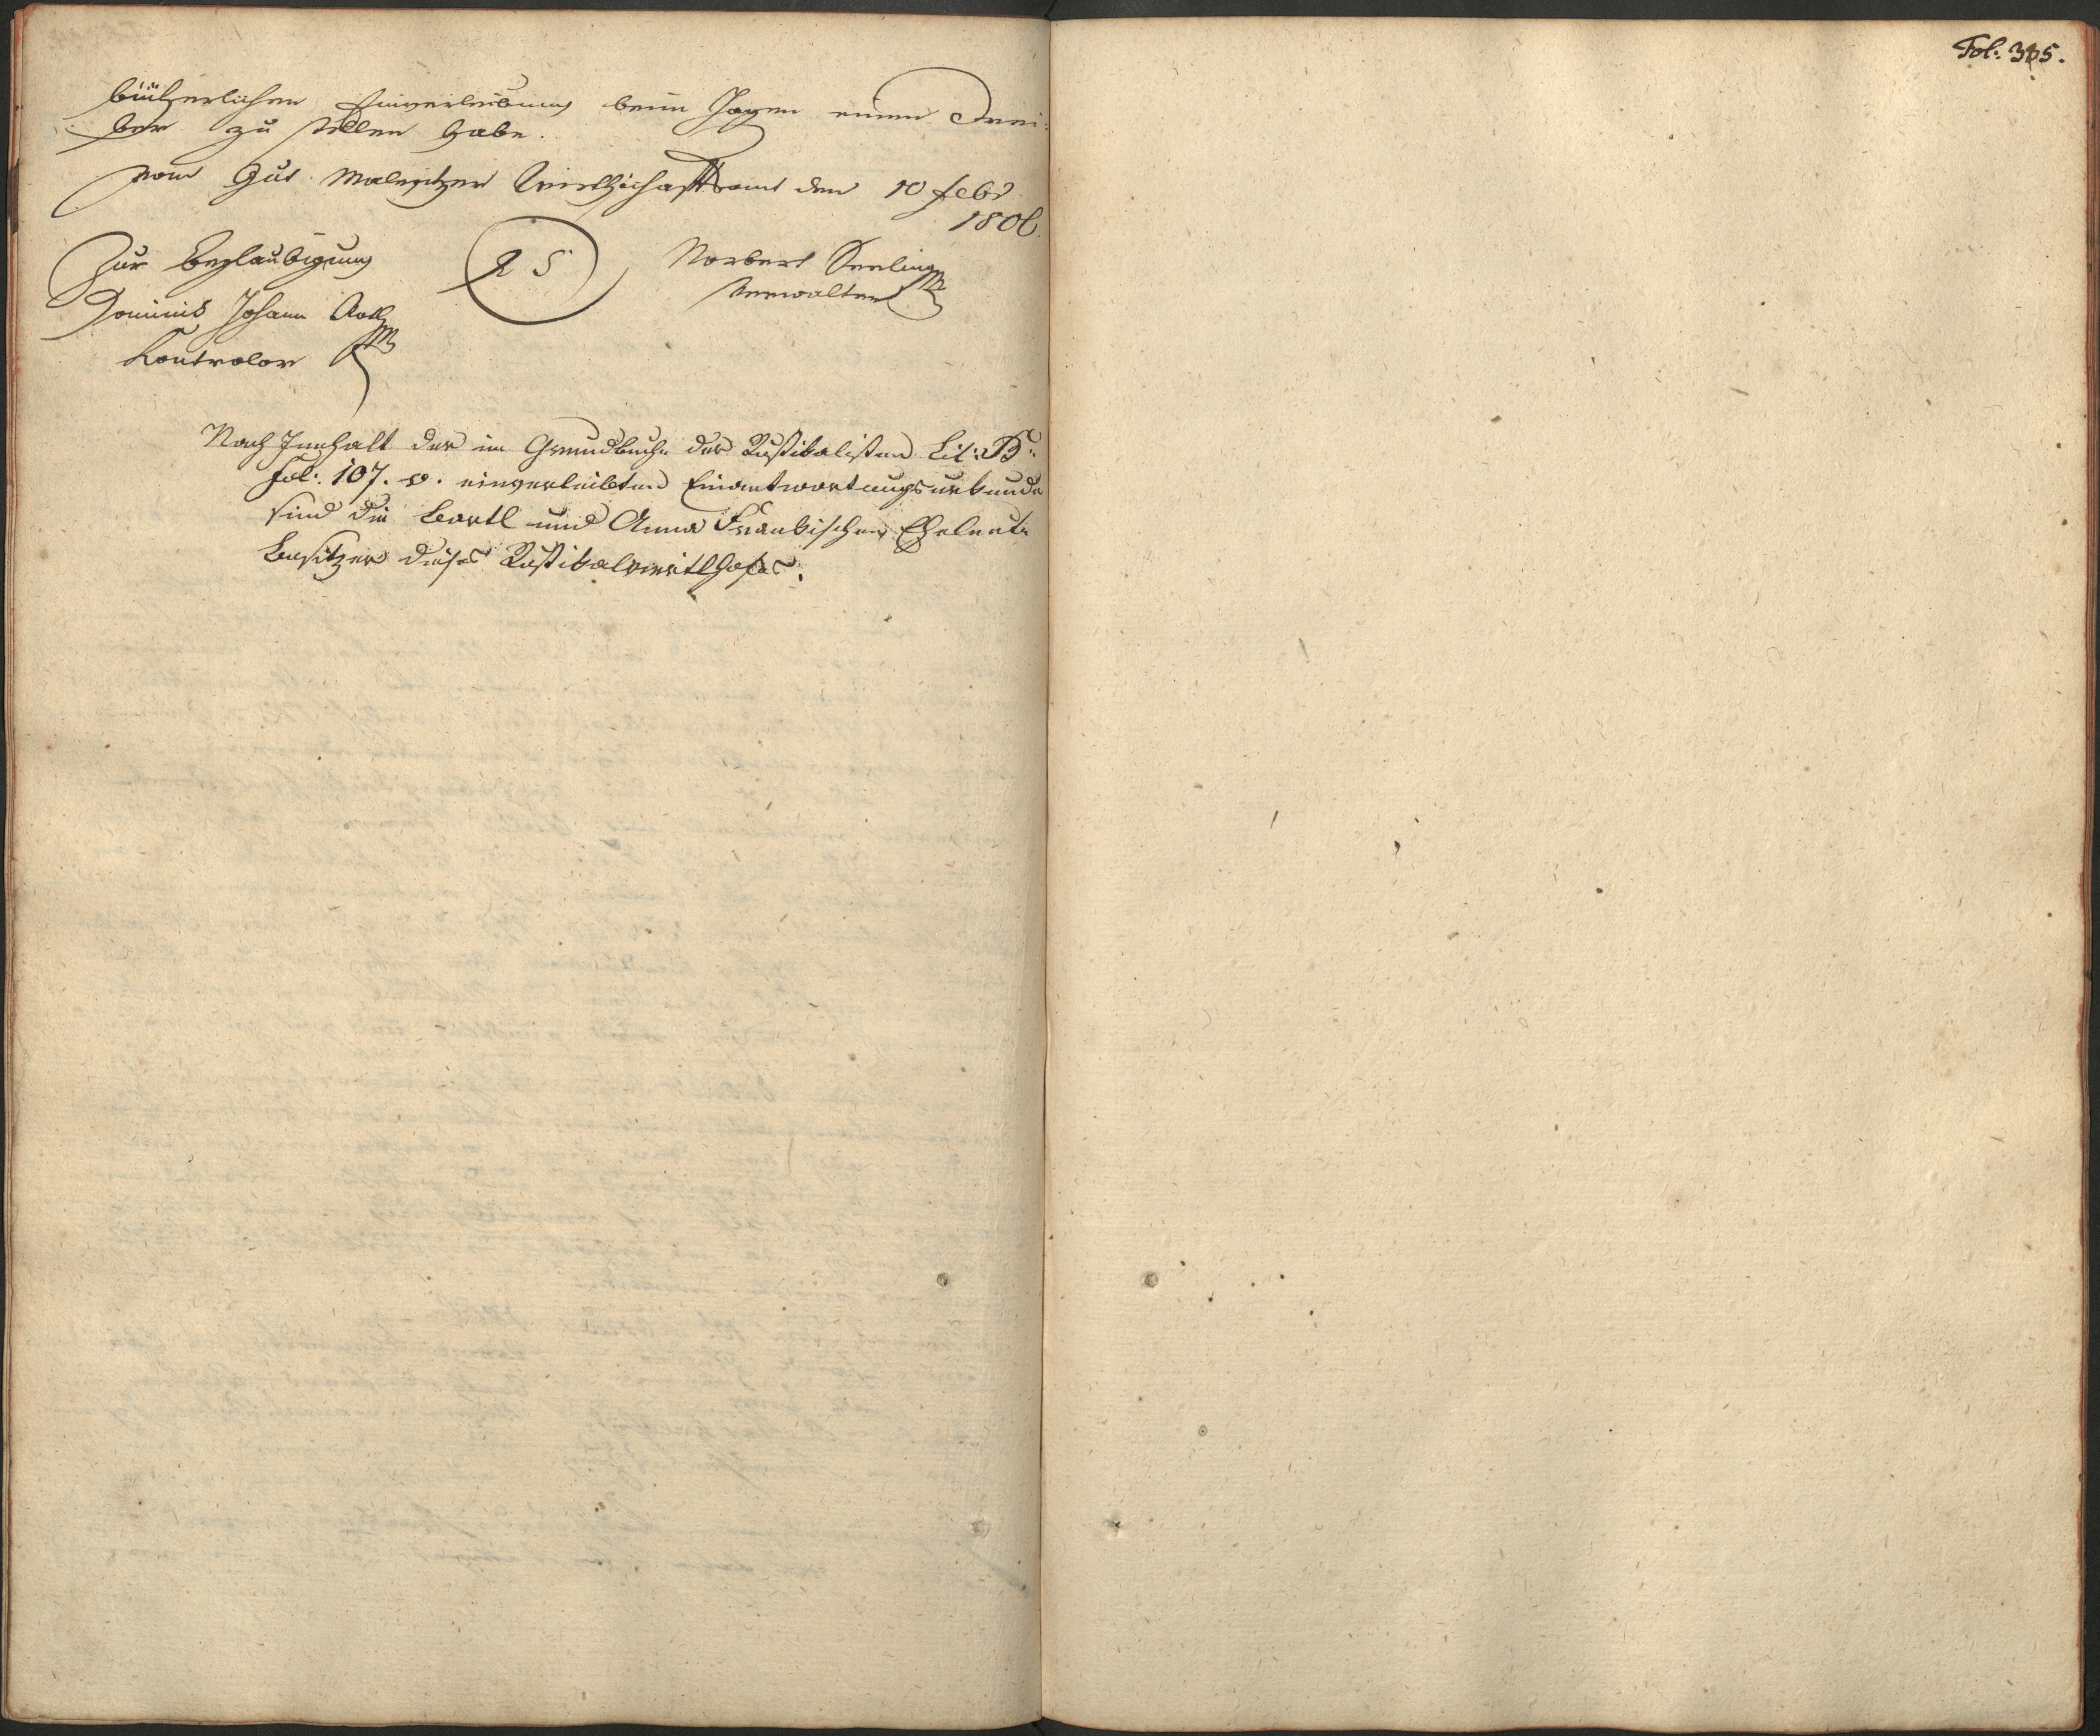 büüherlichen Einverleibung beim Jagen einen Trei:
ber zu stellen habe.
vom Gut Malesitzer Wirthschaftsamt den 10 febr
1806.
Zur Beglaubigung
Dominik Johann Roth
Kontrolor
L S
Norbert Seeling
Verwalter
Nach Innhalt der im Grundbuche der Rustikalisten Lit: B:
Fol: 107. v. einverleibten Einantwortungsurkunde
sind die Bartl und Anna Frankischen Eheleute
Besitzer dieses Rustikalviertlhofes.
Fol: 345.